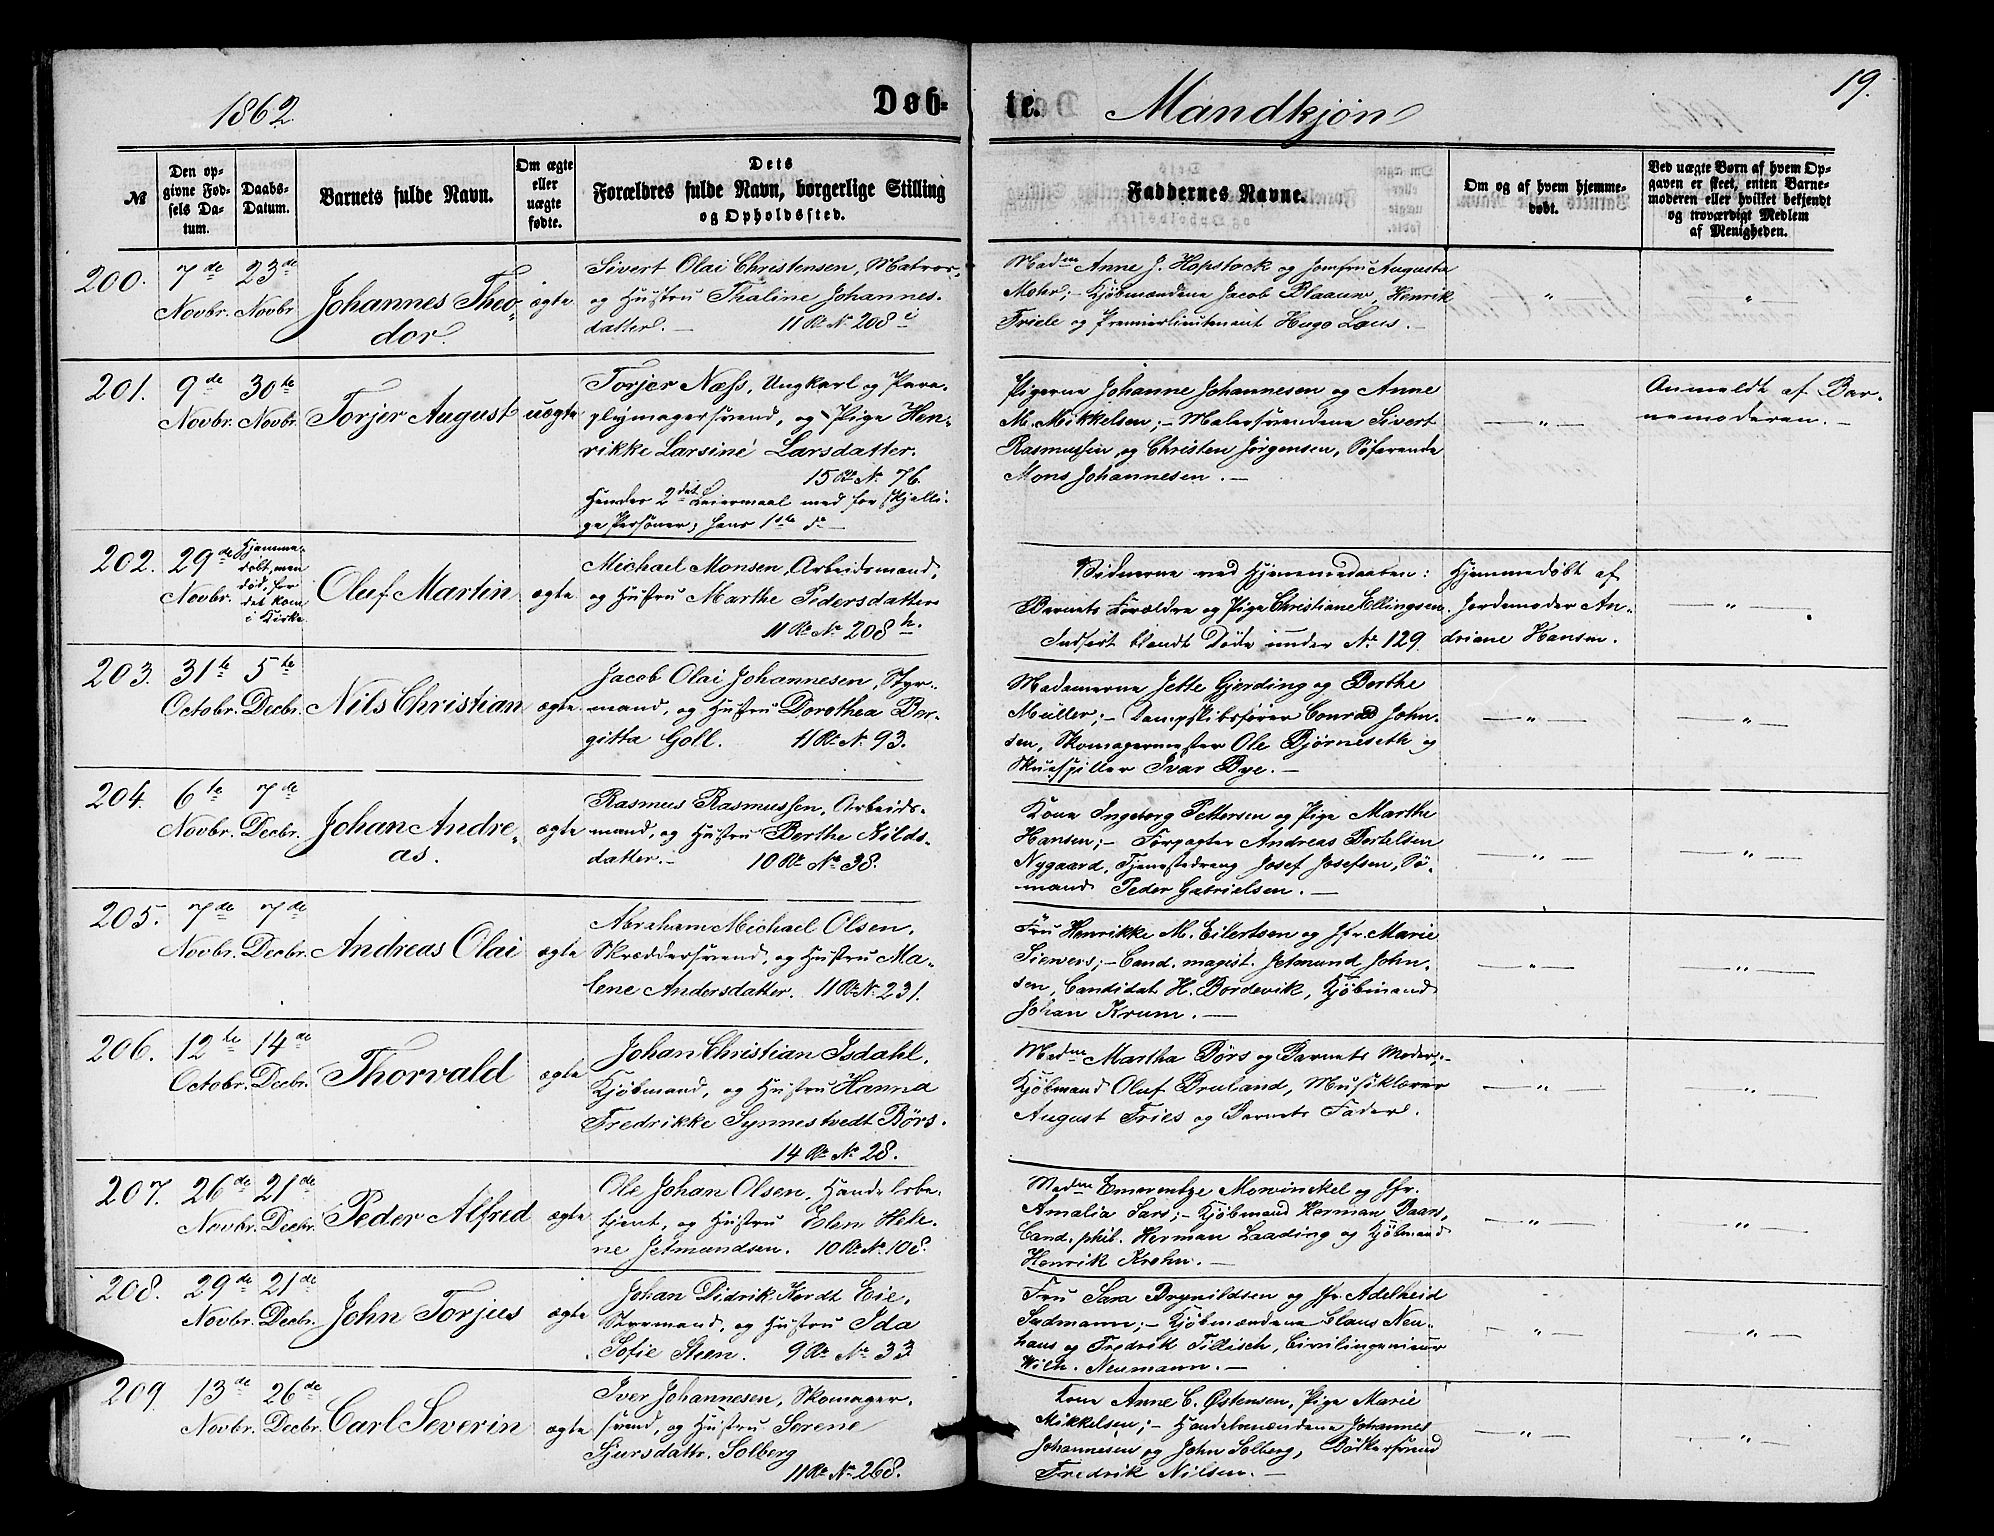 1862.
Døb-
te.
Mandkjøn
19.
№
Den op-
givne Fød-
sels Da-
tum.
Daabs-
Datum.
Barnets fulde Navn.
Om ægte
eller
uægte
fødte.
Dets
Forældres fulde Navn, borgerlige Stilling
og Opholdssted.
Faddernes Navne.
Om og af hvem hjemme-
døbt.
Ved uægte Børn af hvem Op-
gaven er skeet, enten Barne-
moderen eller hvilket bekjendt
og troværdigt Medlem
af Menigheden.
200.
7de
Novbr.
23de
Novbr
Johannes Theo-
dor
ægte
Sivert Olai Christensen, Matros,
og Hustru Thaline Johannes-
datter. — 11 Rd. No. 208 i
Madme Anne J. Hopstock og Jomfru Augusta
Mohr; Kjøbmændene Jacob Blaauw, Henrik
Friele og Premierlieutenant Hugo Laus. —
"
"
201.
9de
Novbr.
30te
Novbr.
Torjer August
uægte
Torjer Næss, Ungkarl og Para-
plymagersvend, og Pige Hen-
rikke Larsine Larsdatter.
15 Rd. No. 76.
Hendes 2det Leiermaal med forskjelli-
ge Personer; hans 1ste do —
Pigerne Johanne Johannesen og Anne
M. Mikkelsen; — Malersvendene Sivert
Rasmussen og Christen Jørgensen, Søfarende
Mons Johannesen. —
— " —
Anmeldt af Bar-
nemoderen. —
202.
29de
Novbr.
Hjemme-
døbt, men
død, før
det kom
i Kirke.
Oluf Martin
ægte
Michael Monsen, Arbeidsmand,
og Hustru Marthe Pedersdatter
11 Rd. No. 208 h.
Vidnerne ved Hjemmedaaben:
Barnets Forældre og Pige Christiane Ellingsen.
Indført blandt Døde under No. 129.
Hjemmedøbt af
Jordemoder An-
driane Hansen.
— " —
203.
31te
Octobr.
5te
Decbr.
Nils Christian
ægte
Jacob Olai Johannesen, Styr-
mand, og Hustru Dorothea Bir-
gitta Goll. 11 Rd. No. 93.
Madamerne Jette Gjerding og Berthe
Müller; — Dampskibsfører Conrad John-
sen, Skomagermester Ole Bjørneseth og
Skuespiller Ivar Bye. —
— " —
— " —
204.
6te
Novbr.
7de
Decbr.
Johan Andre-
as.
ægte
Rasmus Rasmussen, Arbeids-
mand, og Hustru Berthe Nilds-
datter. — 10 Rd. No. 38.
Kone Ingeborg Pettersen og Pige Marthe
Hansen; — Forpagter Andreas Bertelsen
Nygaard, Tjenestedreng Josef Josefsen, Sø-
mand Peder Gabrielsen. —
— " —
— " —
205.
7de
Novbr.
7de
Decbr.
Andreas Olai
ægte
Abraham Michael Olsen,
Skræddersvend, og Hustru Ma-
lene Andersdatter. 11 Rd. No. 231.
Fru Henrikke M. Eilertsen og Jfr. Marie
Siewers; — Cand. magist. Jetmund John-
sen, Candidat H. Bordevik, Kjøbmand
Johan Krum. —
— " —
— " —
206.
12te
Octobr.
14de
Decbr.
Thorvald
ægte
Johan Christian Isdahl,
Kjøbmand, og Hustru Hanna
Fredrikke Synnestvedt Børs.
14 Rd. No. 28.
Madme Martha Børs og Barnets Moder; —
Kjøbmand Oluf Bruland, Musiklærer
August Fries og Barnets Fader.
— " —
— " —
207.
26de
Novbr.
21de
Decbr.
Peder Alfred
ægte
Ole Johan Olsen, Handelsbe-
tjent, og Hustru Elen Hele-
ne Jetmundsen. 10 Rd. No. 108.
Madme Emerentze Mowinckel og Jfr.
Amalia Sars; — Kjøbmand Herman Daan,
Cand. phil. Herman Laading og Kjøbmand
Henrik Krohn. —
— " —
— " —
208.
29de
Novbr.
21de
Decbr.
John Torjus
ægte
Johan Didrik Kordt Eie,
Styrmand, og Hustru Ida
Sofie Steen. 9 Rd. No. 33
Fru Sara Brynildsen og Jfr. Adelheid
Sadmann; — Kjøbmændene Claus Neu-
haus og Fredrik Tillisch, Civilingenieur
Wilh. Neumann. —
— " —
— " —
209.
13de
Novbr.
26de
Decbr.
Carl Severin
ægte
Iver Johannesen, Skomager-
svend, og Hustru Sørene
Sjursdatr. Solberg
11 Rd. No. 268.
Kone Anne C. Østensen, Pige Marie
Mikkelsen; — Handelsmændene Johannes
Johannesen og John Solberg, Bødkersvend
Fredrik Nilsen. —
— " —
— " —